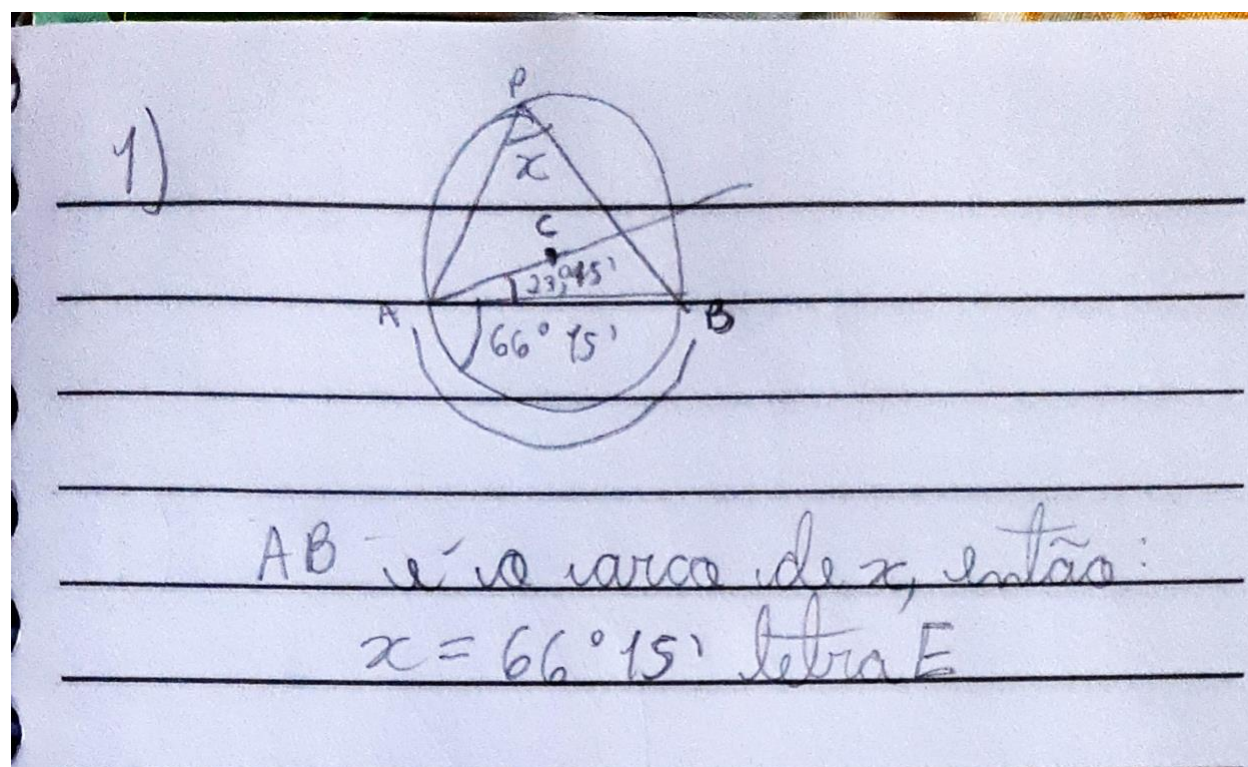 1)
P
x
C
23°45'
A
B
66° 15'
AB é o arco de x, então:
x = 66° 15' letra E